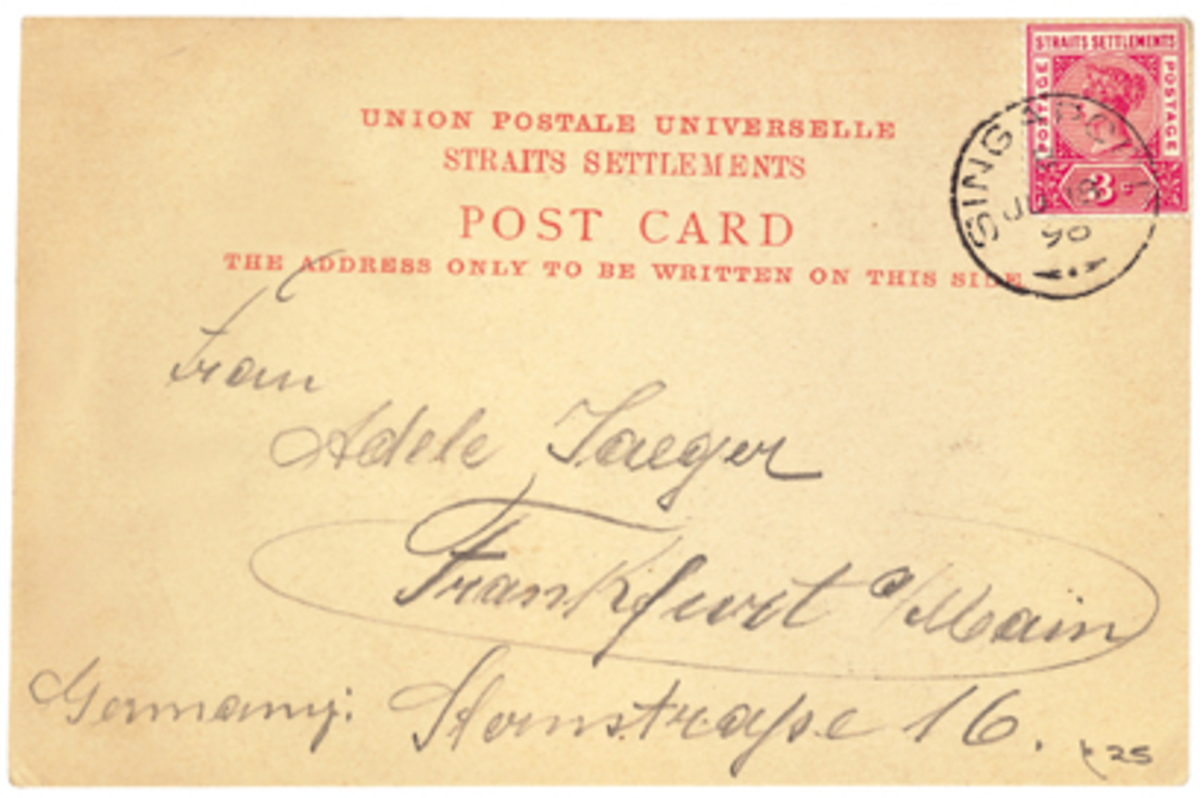 STRAITS SETTLEMENTS
POSTAGE
POSTAGE
3
UNION POSTALE UNIVERSELLE
STRAITS SETTLEMENTS
POST CARD
THE ADDRESS ONLY TO BE WRITTEN ON THIS SIDE
SINGAPO
JU 18
90
Frau
Adele Jaeger
Frankfurt a/Main
Germany: Sternstraße 16.
25